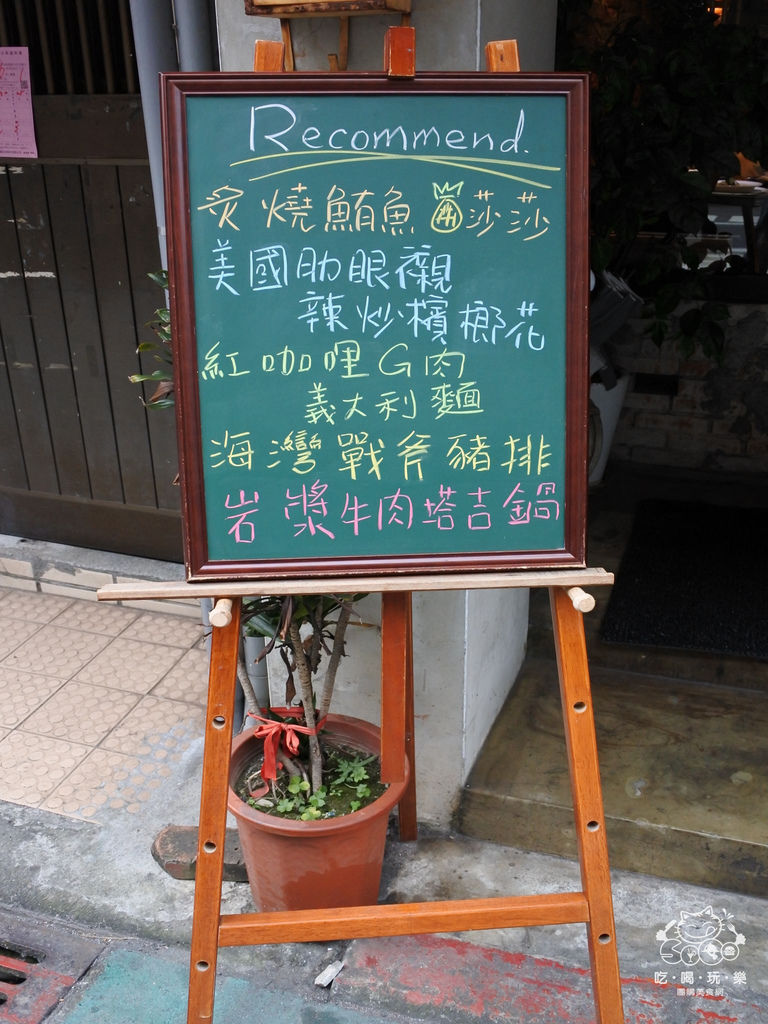 Recommend.
炙燒鮪魚鳳梨莎莎
美國肋眼襯
辣炒檳榔花
紅咖哩G肉
義大利麵
海灣戰斧豬排
岩漿牛肉塔吉鍋
吃·喝·玩·樂
團購美食網